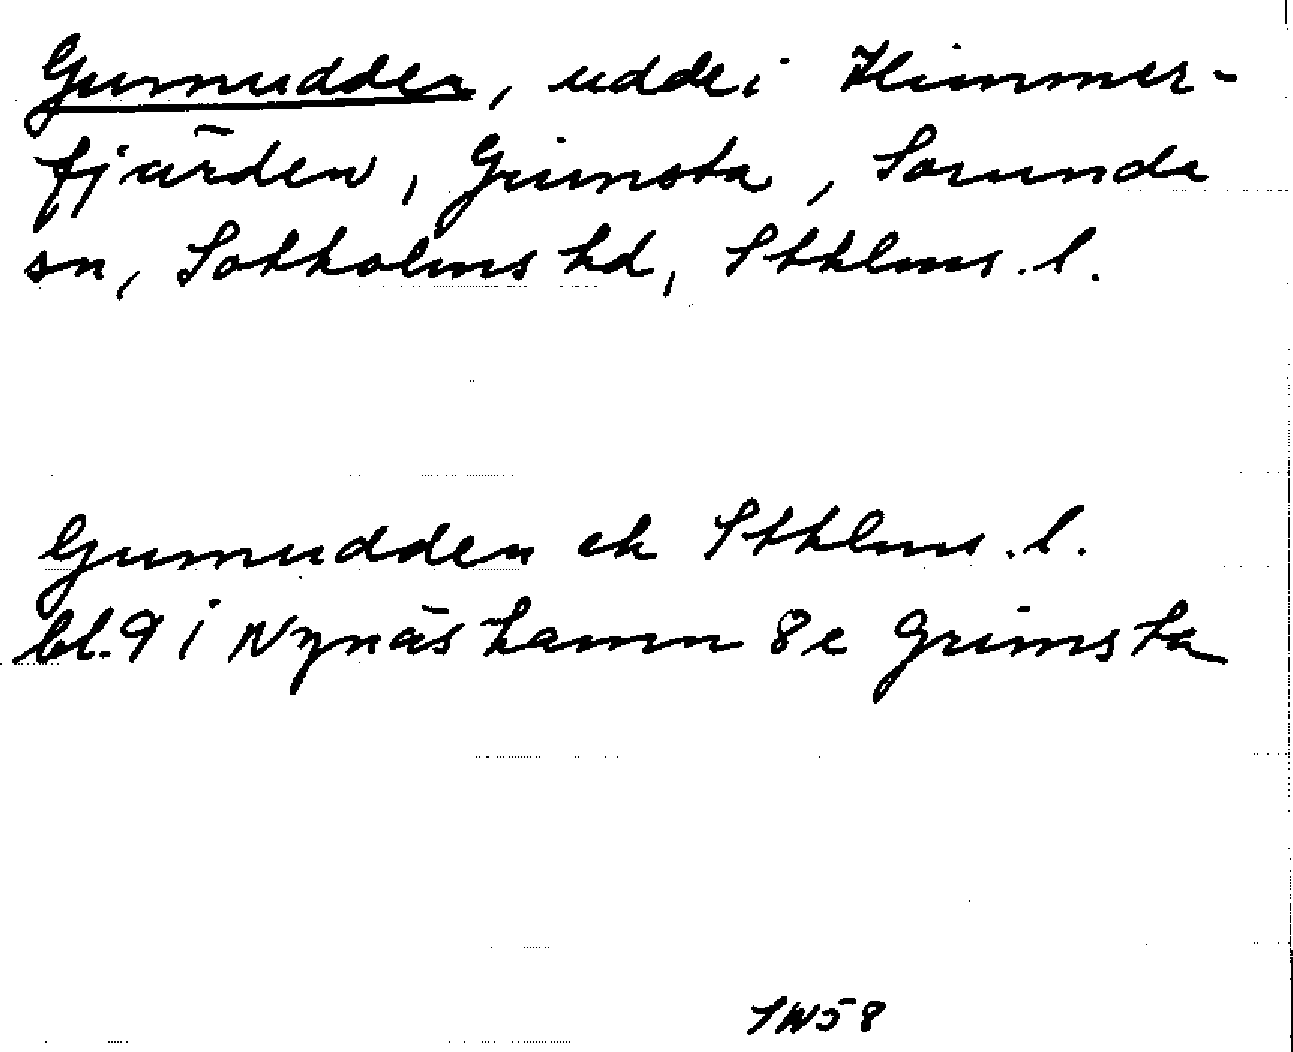 Gumudden, udde i Himmer-
fjärden, Grimsta, Sorunda
sn, Sotholms hd, Sthlms. l.
Gumudden ek Sthlms. l.
bl. 9 i Nynäshamn 8e Grimsta
58